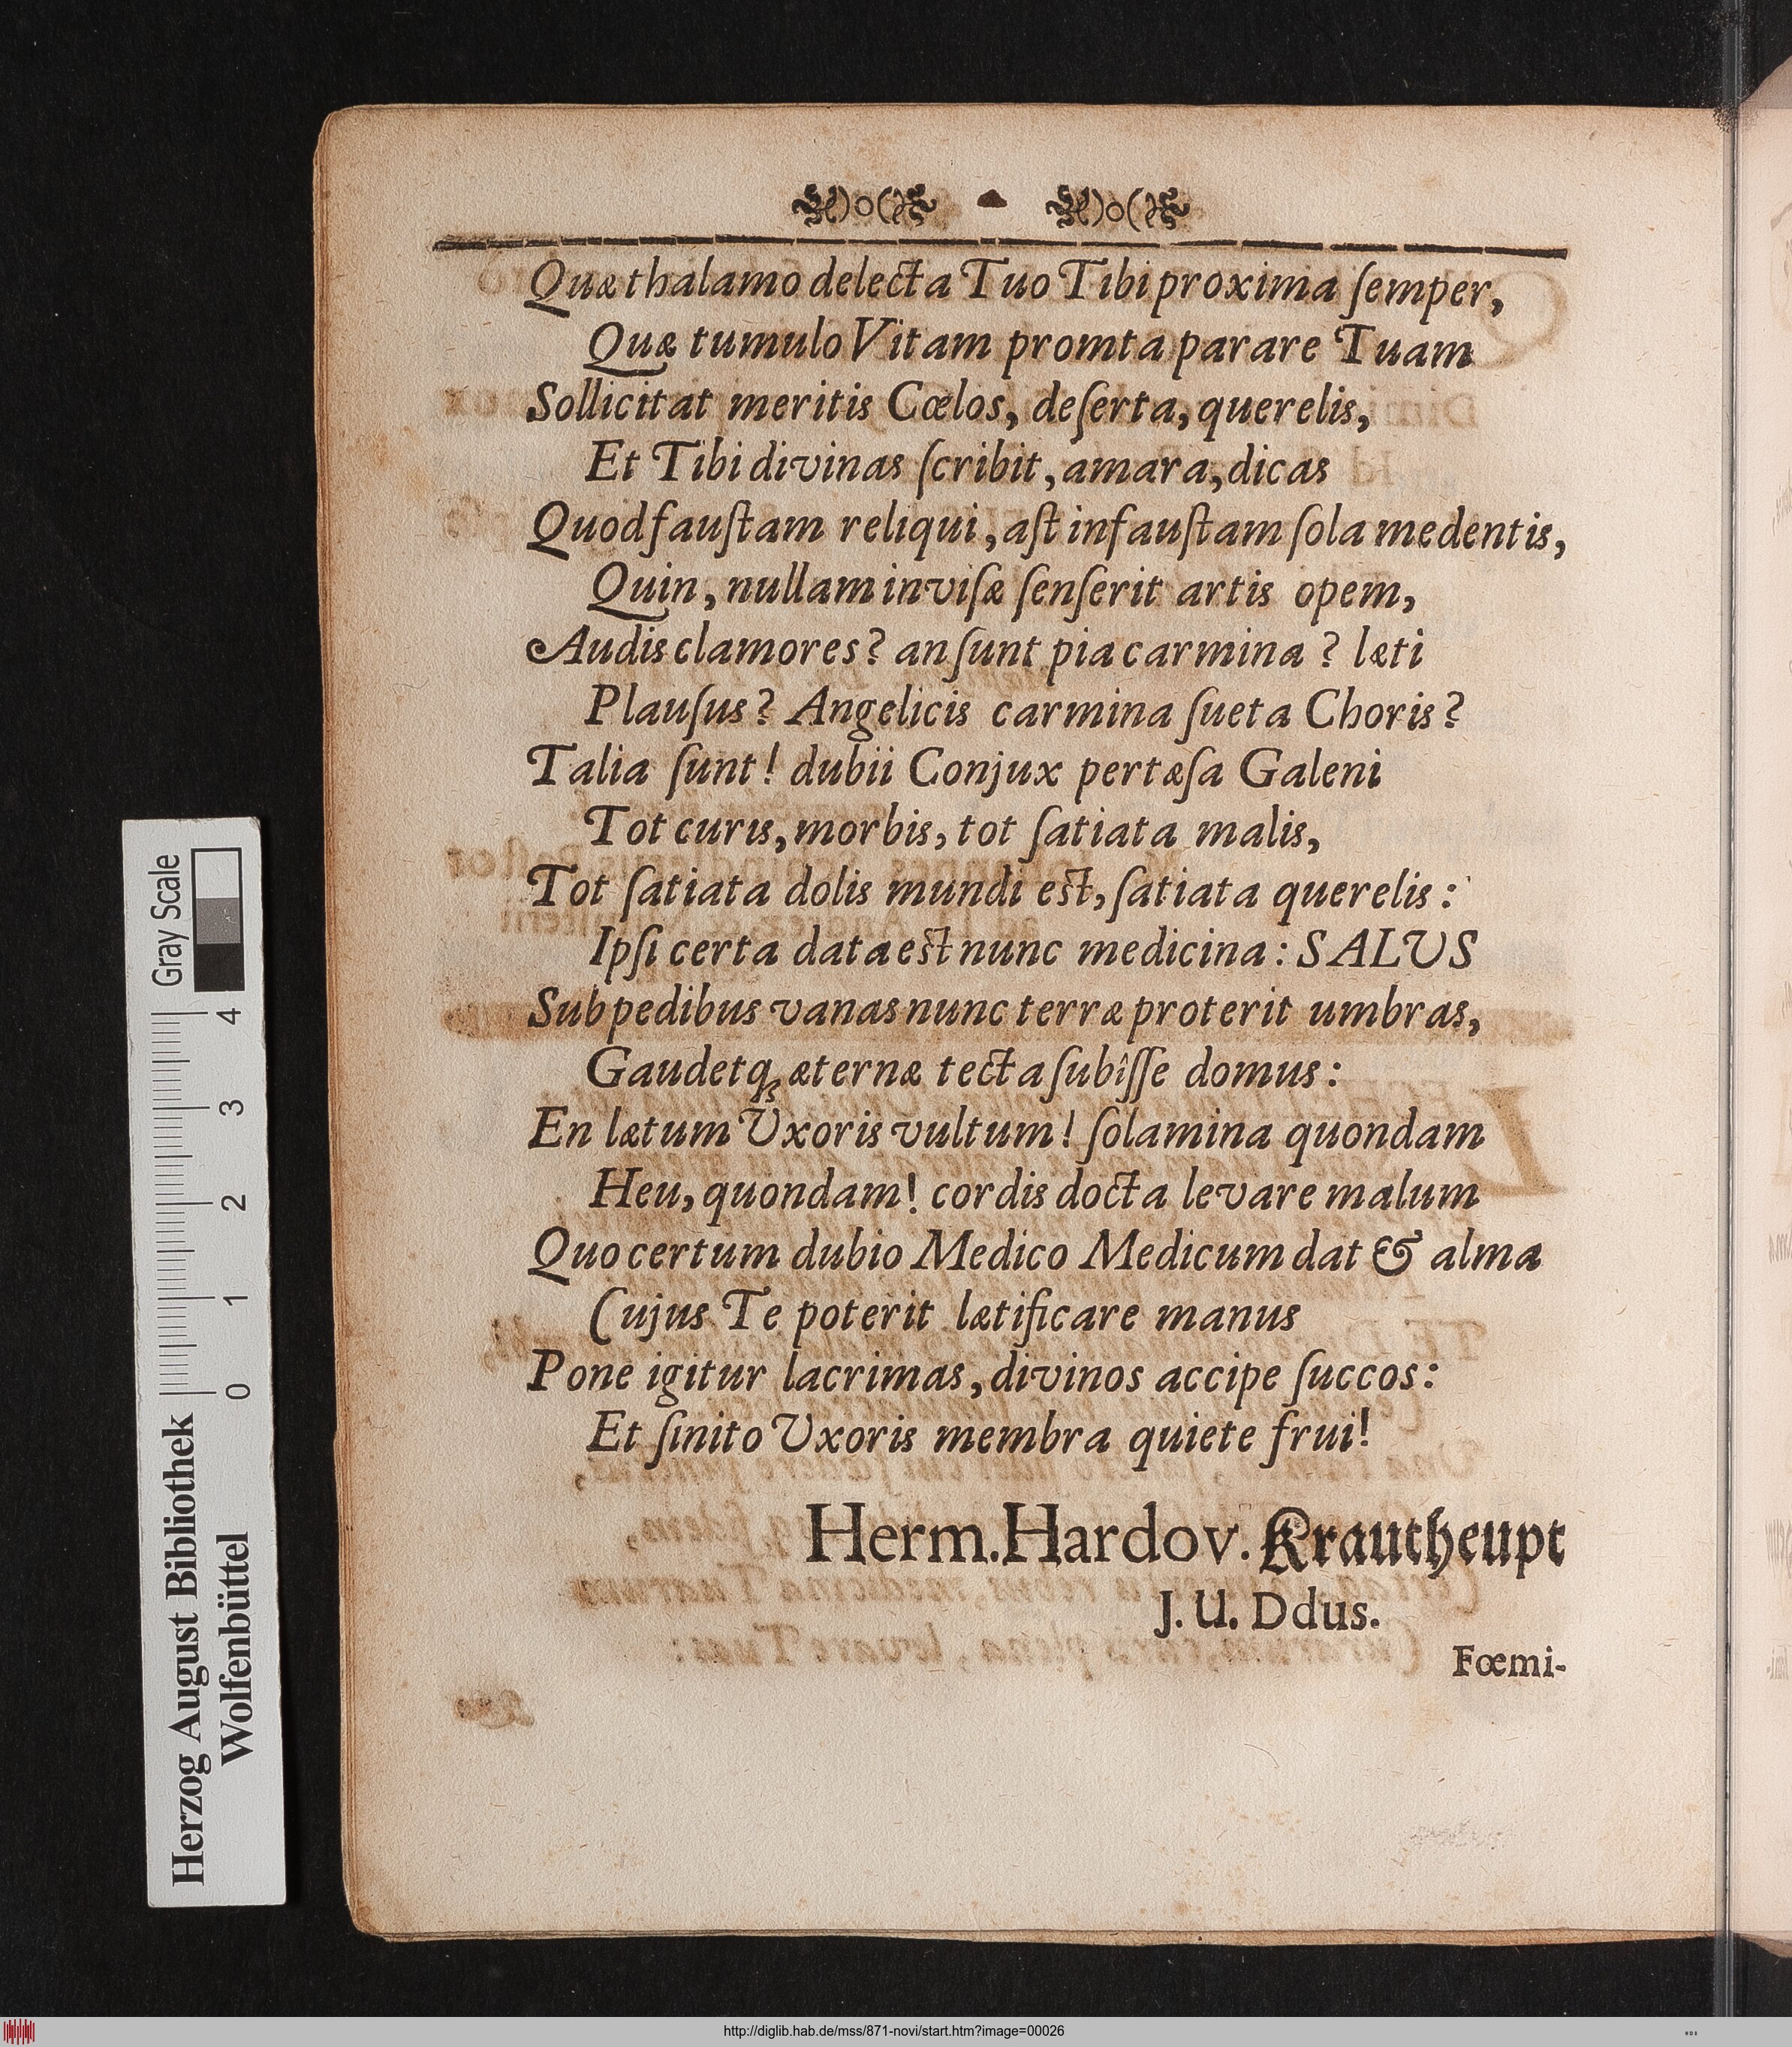 Quæ thalamo delecta Tuo Tibi proxima ſemper,
Quæ tumulo Vitam promta parare Tuam
Sollicitat meritis Cœlos, deſerta, querelis,
Et Tibi divinas ſcribit, amara, dicas
Quod fauſtam reliqui, aſt infauſtam ſola medentis,
Quin, nullam inviſæ ſenſerit artis opem,
Audis clamores? an ſunt pia carmina? læti
Plauſus? Angelicis carmina ſueta Choris?
Talia ſunt! dubii Conjux pertæſa Galeni
Tot curis, morbis, tot ſatiata malis,
Tot ſatiata dolis mundi est, ſatiata querelis:
Ipſi certa data est nunc medicina: SALUS
Sub pedibus vanas nunc terræ proterit umbras,
Gaudetq́; æternæ tecta ſubîſſe domus:
En lætum Uxoris vultum! ſolamina quondam
Heu, quondam! cordis docta levare malum
Quo certum dubio Medico Medicum dat & alma
Cujus Te poterit lætificare manus
Pone igitur lacrimas, divinos accipe ſuccos:
Et ſinito Uxoris membra quiete frui!
Herm. Hardov. Krautheupt
J. U. Ddus.
Fœmi-
Herzog August Bibliothek
Wolfenbüttel
0 1 2 3 4
Gray Scale
http://diglib.hab.de/mss/871-novi/start.htm?image=00026